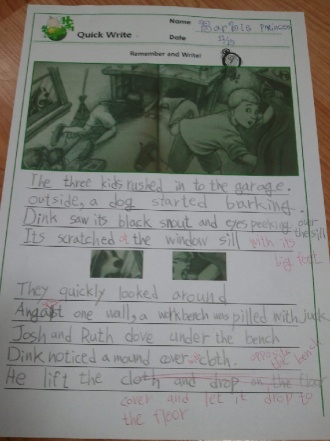 Quick Write
Name Barbis Princess
Date
Remember and Write!
The three kids rushed in to the garage.
outside, a dog started barking.
Dink saw its black snout and eyes peeking over the sill
Its scratched at the window sill with its big feet
They quickly looked around
Angaist one wall, a workbench was pilled with junk
Josh and Ruth dove under the bench
Dink noticed a mound over cloth. the bench
He lift the cloth and drop on the floor
cover and let it drop to
the floor